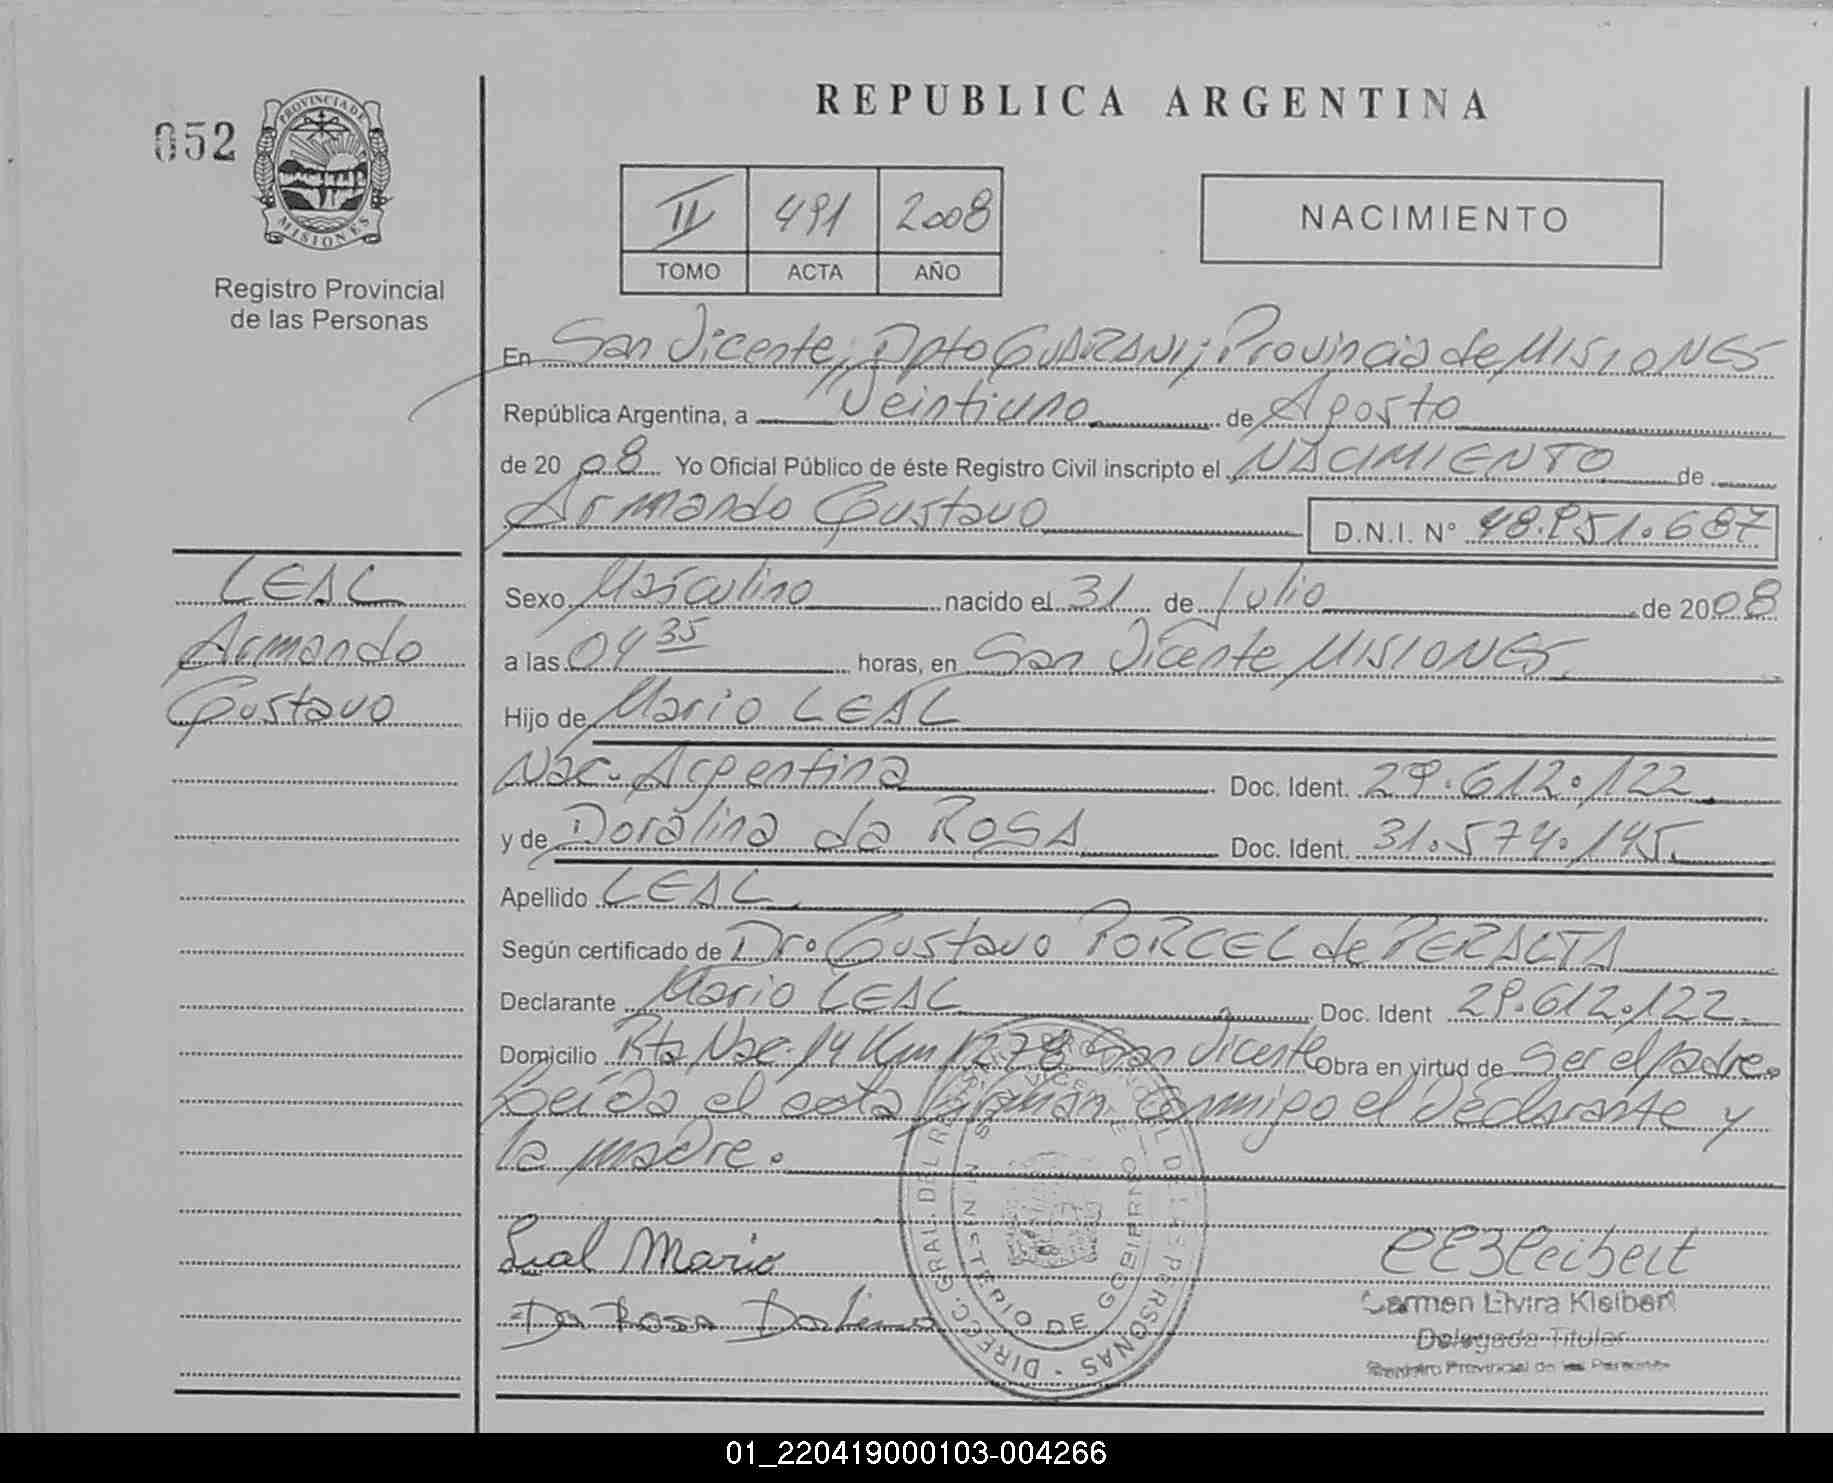 052
PROVINCIA DE
MISIONES
Registro Provincial
de las Personas
REPUBLICA ARGENTINA
II 491 2008
TOMO ACTA AÑO
NACIMIENTO
En San Vicente, Dpto GUARANI; Provincia de MISIONES
República Argentina, a Veintiuno de Agosto
de 2008 Yo Oficial Público de éste Registro Civil inscripto el NACIMIENTO de
Armando Gustavo D.N.I. Nº 48.951.687
LEAL
Armando
Gustavo
Sexo Masculino nacido el 31 de Julio de 2008
a las 04 35 horas, en San Vicente MISIONES.
Hijo de Mario LEAL
Nac. Argentina Doc. Ident. 29.612.122
y de Doralina da ROSA Doc. Ident. 31.574.145.
Apellido LEAL
Según certificado de Dr. Gustavo PORCEL de PERALTA
Declarante Mario LEAL Doc. Ident 29.612.122.
Domicilio Rta Nac. 14 Km 1278 San Vicente Obra en virtud de Ser el padre.
Leída el acta firman conmigo el declarante y
la madre.
Leal Mario
Da Rosa
Carmen Elvira Kleibert
Delegada Titular
Registro Provincial de las Personas
MINISTERIO DE GOBIERNO
DIRECC. GRAL. DEL PERSONAS
01_220419000103-004266